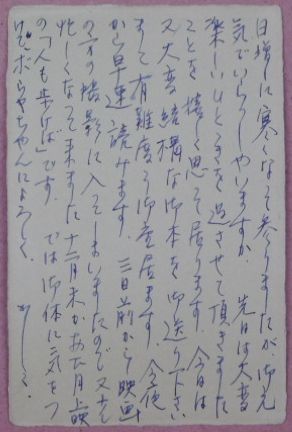 日増しに寒くなって参りましたが、御元
気でいらっしゃいますか。先日は大変
楽しいひとときを過させて頂きました
ことを嬉しく思って居ります。今日は
又大変結構な御本を御送り下さい
まして有難度う御座居ます。今夜
から早速読みます。三日前から映画
の方の撮影に入ってしまいましたので又大変
忙しくなって来ました。十二月末かお正月上映
の「人も歩けば」です。では御体に気をつ
けて、ボウヤちゃんによろしく。かしこ。